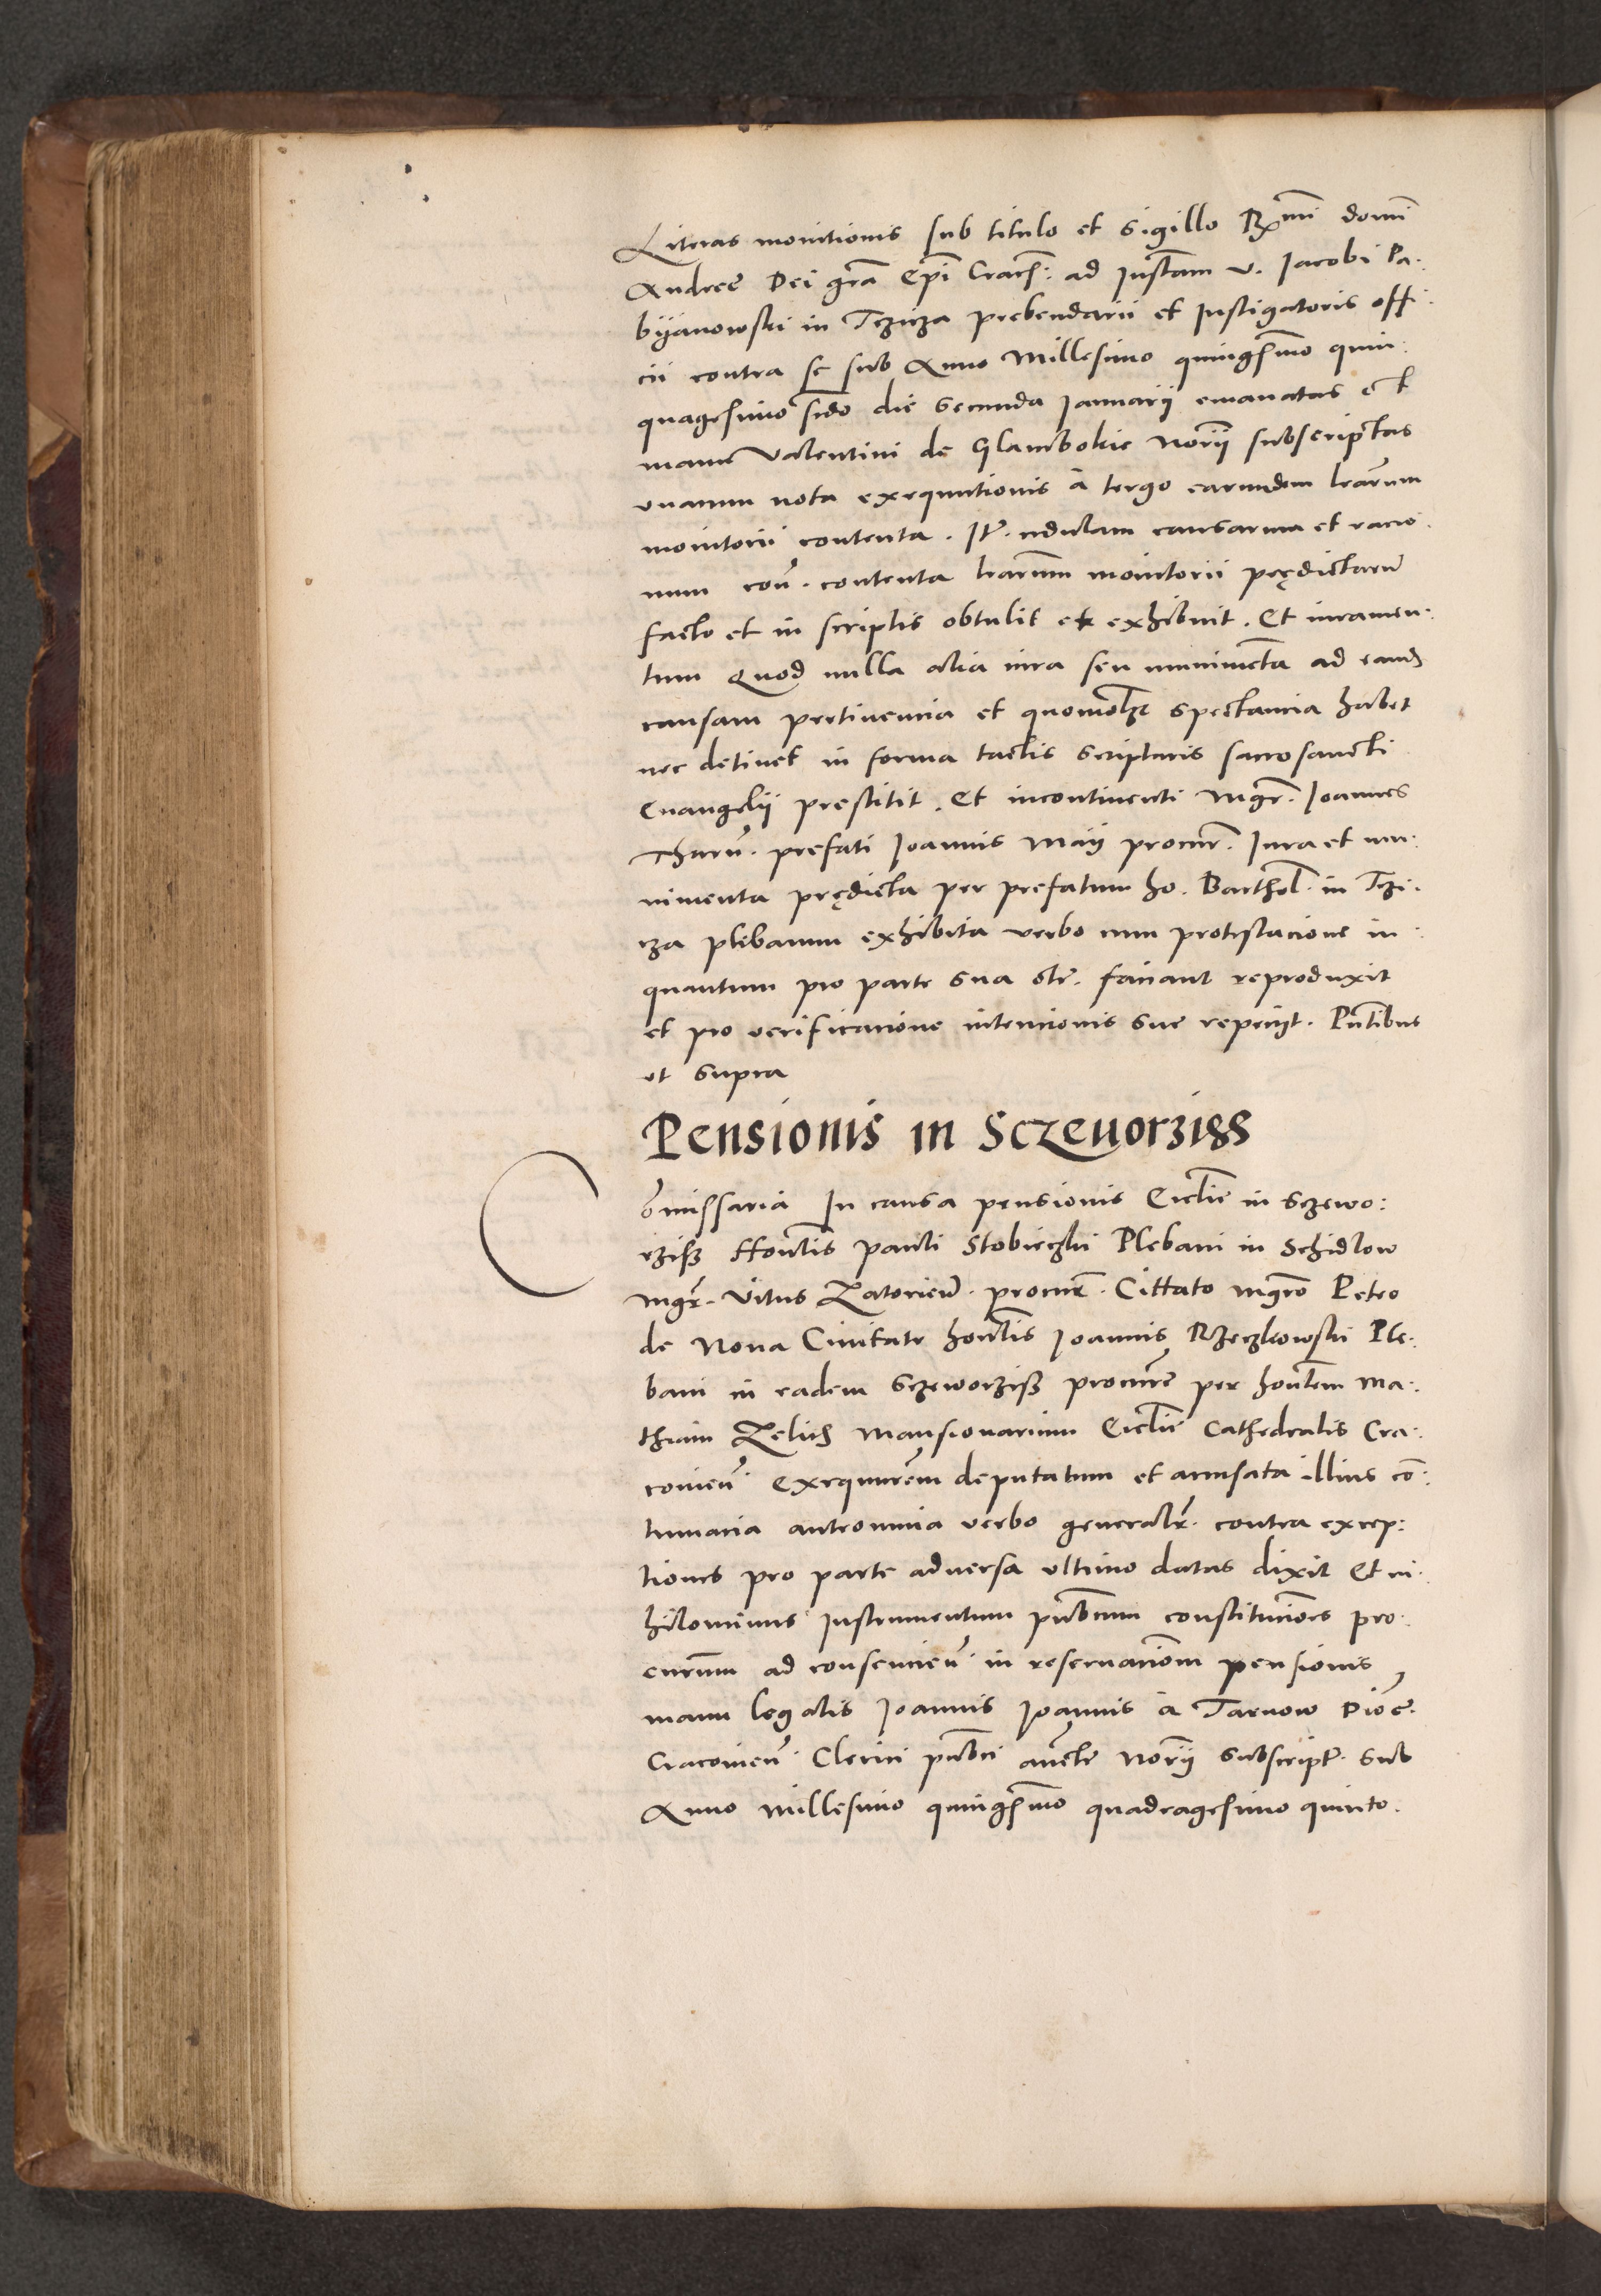 Literas monitionis sub titulo et sigillo R̃mi domĩ
Andreę Dei grã Epĩ Cracħ: ad Instãm v. Jacobi Pa-
byanowski in Tczicza prebendarii et Instigatoris offi-
cii contra se sub Anno Millesimo quingẽmo quin-
quagesimo sẽdo die secunda Januarii emanatas et
manu Valentini de Glambokie Norii subscriptas
unacum nota exequutionis a tergo earundem lrarum
monitorii contenta. It. cedulam causarum et racio-
num con̄. contenta lrarum monitorii prędictarum
facto et in scriptis obtulit et exhibuit. Et iuramen-
tum Quod nulla alia iura seu munimenta ad eand
causam pertinencia et quomolt spectancia habet
nec detinet in forma tactis scripturis sacrosancti
Evangelii prestitit. Et incontinenti mgr. Joannes
Tharn̄. prefati Joannis Maii procur. Iura et mu-
nimenta prędicta per prefatum ho. Barthol. in Tczi-
cza plebanum exhibita verbo cum protestacione in
quantum pro parte sua ōtr. faciant reproduxit
et pro verificacione intencionis sue repeciit. Pñtibus
ut supra
Pensionis in Sczevorziss
Cõmissaria In causa pensionis Ecclie in Sczewo:
rziss Honlis Pauli Stobieczki Plebani in Schidlow
mgr. Vitus Zatorien̄. procur. Cittato mgro Petro
de Nova Civitate honlis Joannis Rzeczkowski Ple-
bani in eadem Sczeworziss procurē per honlem Ma-
thiam Zelich Mansionarium Ecclie Cathedralis Cra-
covien̄. Exequurem deputatum et accusata illius cō-
tumacia antronnia verbo generalr. contra excep:
tiones pro parte adversa ultimo datas dixit Et ni-
hilominus Instrumentum publicum constitucionis pro-
curum ad consencien̄. in reservacionem pensionis
manu legalis Joannis Joannis a Tarnow Dioc̄.
Cracovien̄. Clerici publici aucte Norii subscript. sub
Anno millesimo quingẽmo quadragesimo quinto.